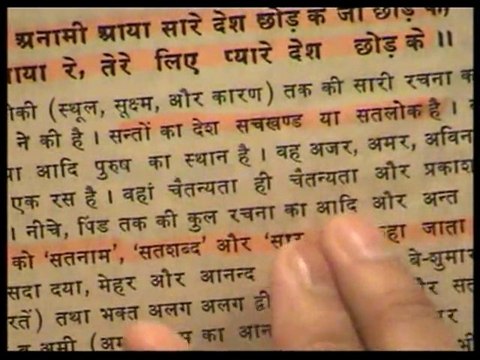 अनामी आया सारे देश छोड़ के जी छोड़
आया रे, तेरे लिए प्यारे देश छोड़ के ॥
(स्थूल, सूक्ष्म, और कारण) तक की सारी रचना
ने की है । सन्तों का देश सचखण्ड या सतलोक है ।
आदि पुरुष का स्थान है । वह अजर, अमर,
एक रस है । वहां चैतन्यता ही चैतन्यता और प्रकाश
। नीचे, पिंड तक की कुल रचना का आदि और अन्त
को 'सतनाम', 'सतशब्द' और जाता
सदा दया, मेहर और आनन्द बे-शुमार
तथा भक्त अलग अलग
का